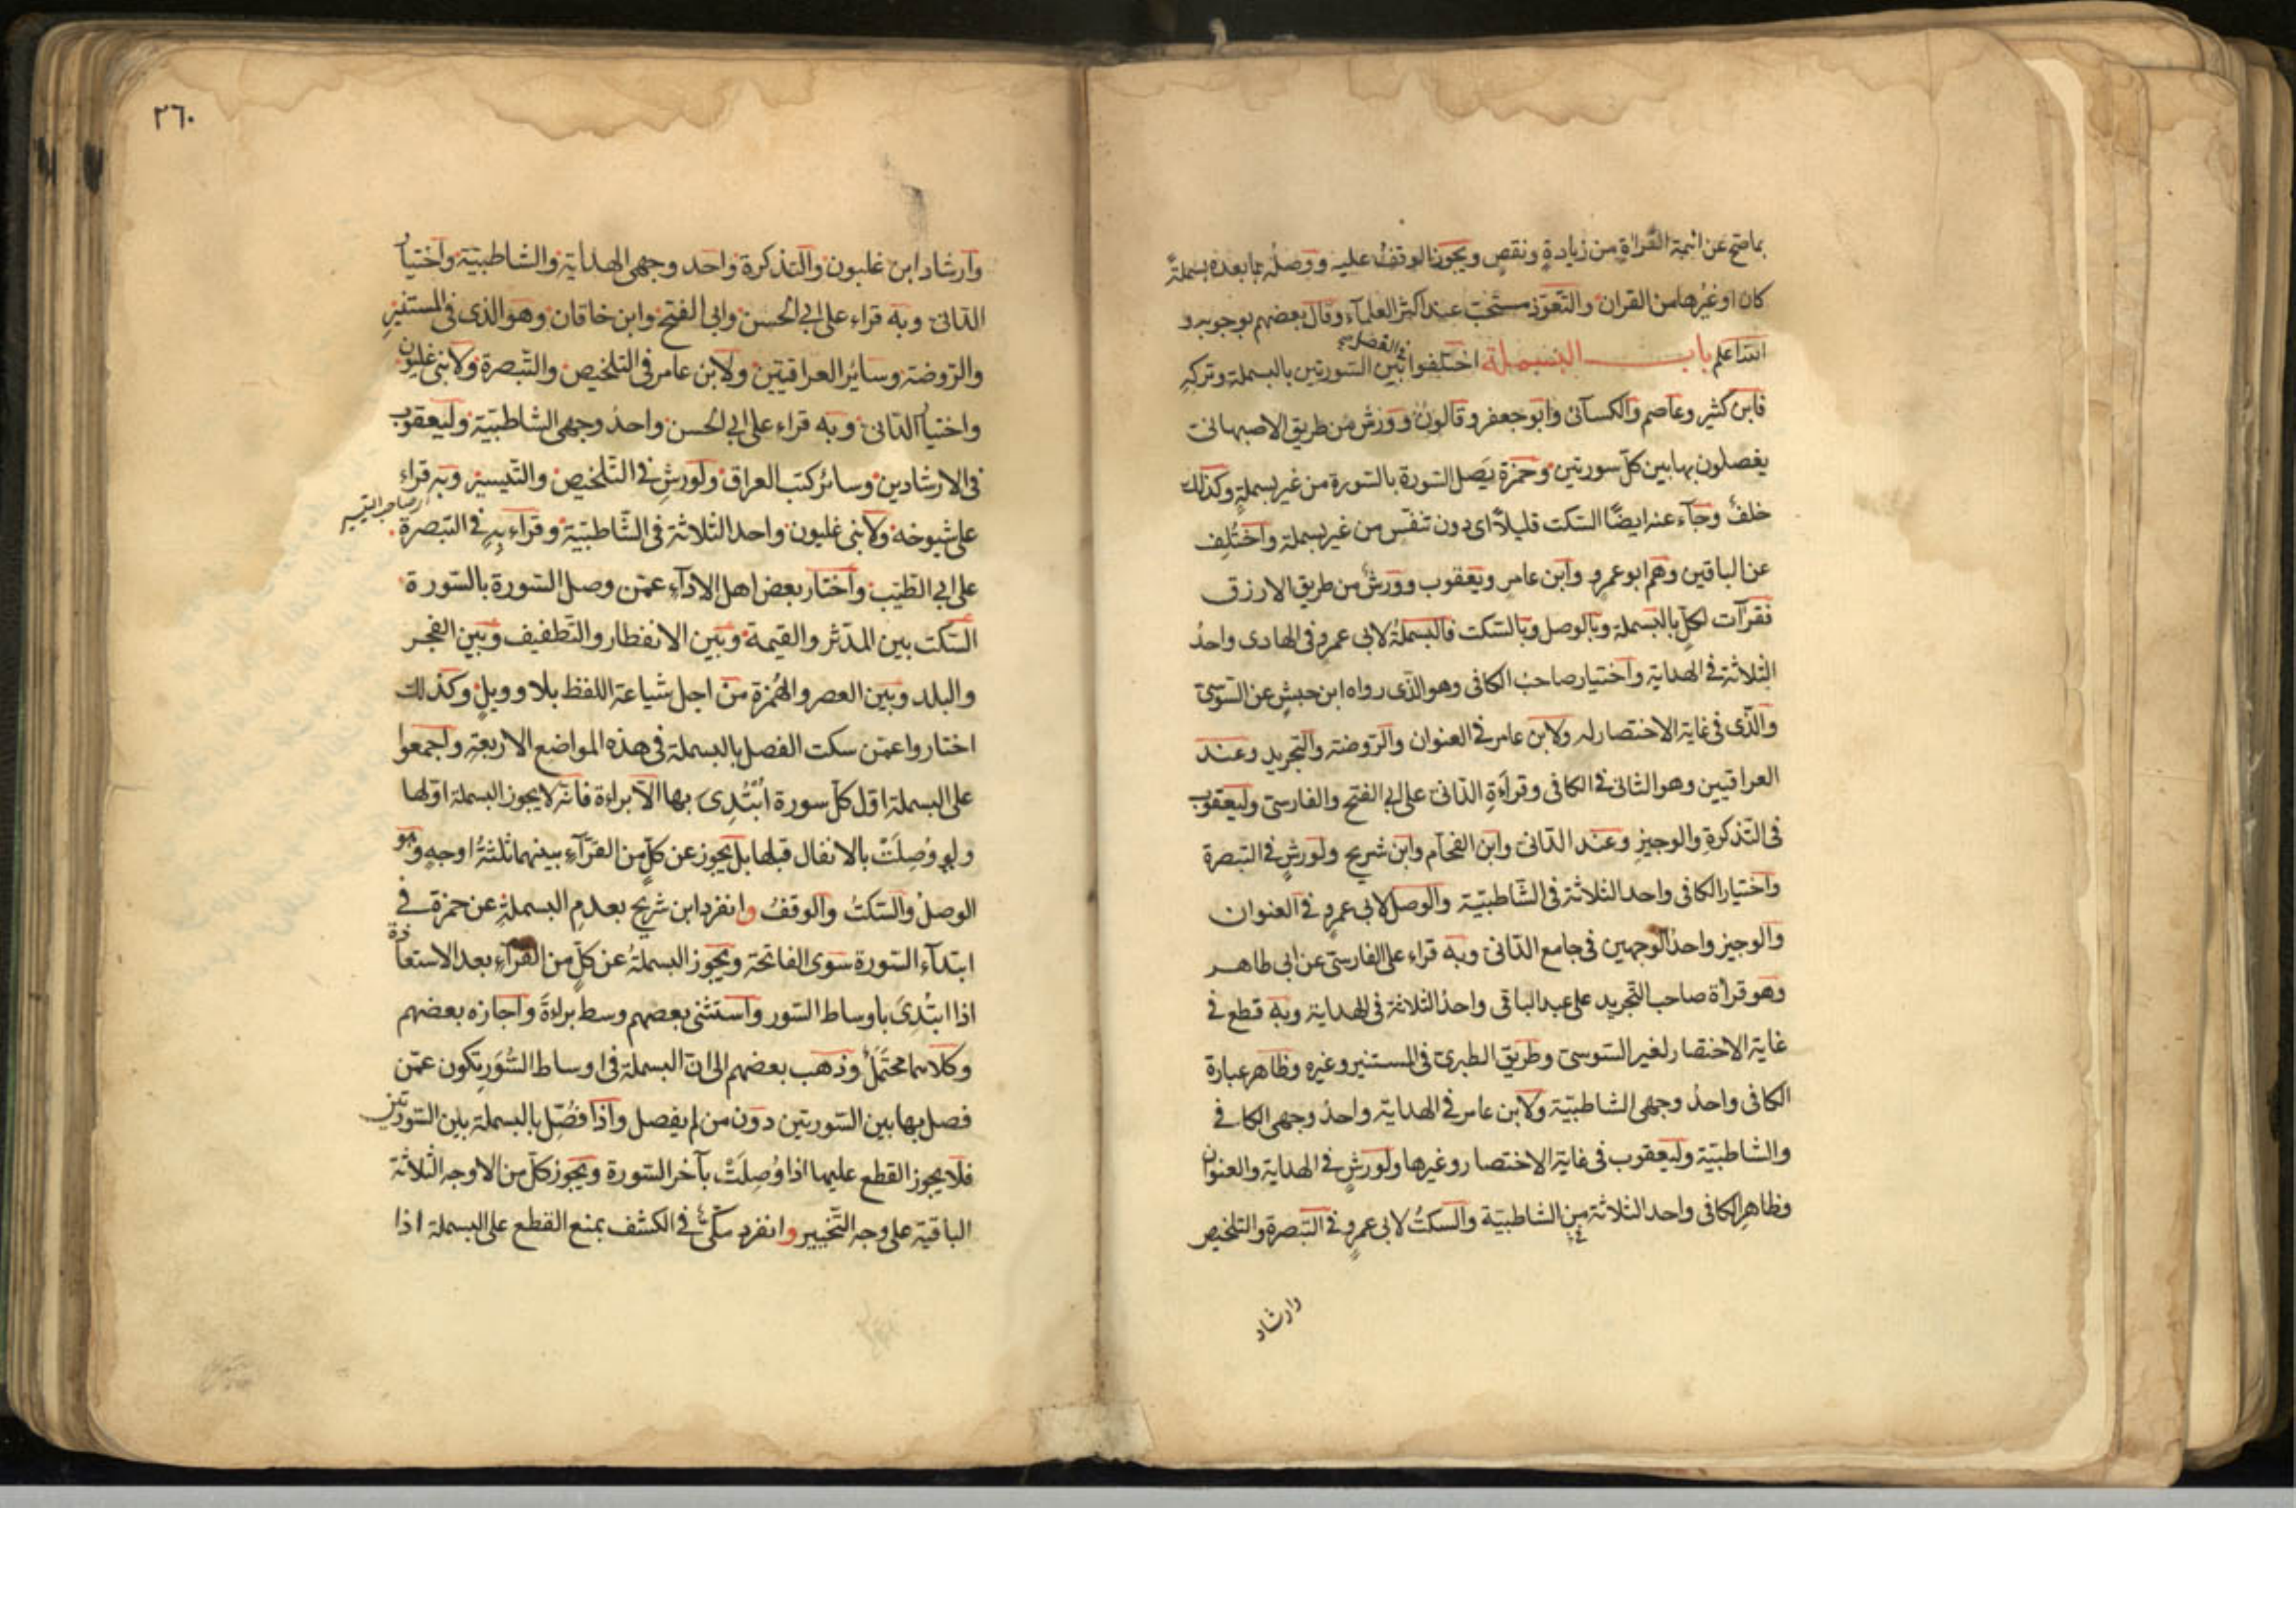 بما صح عن ائمة القراة من زيادة ونقص ويجوز الوقف عليه ووصله بما بعده بسملةً
كان او غيرها من القران والتعوذ مستحب عند اكثر العلمآء وقال بعضهم بوجوبه و
الله اعلم باب البسملة اختلفوا في الفصل بين السورتين بالبسملة وتركه
فابن كثير وعاصم والكسآئى وابو جعفر وقالون وورش من طريق الاصبهانى
يفصلون بها بين كل سورتين وحمزة يصل السورة بالسورة من غير بسملة وكذلك
خلف وجآء عنه ايضًا السكت قليلاً اى دون تنفس من غير بسملة واختُلِف
عن الباقين وهم ابو عمرو وابن عامر ويعقوب وورش من طريق الازرق
فقرآت لكلٍ بالبسملة وبالوصل وبالسكت فالبسملة لابى عمرو فى الهادى واحدُ
الثلاثة فى الهداية واختيار صاحب الكافى وهو الذى رواه ابن حبش عن السوسى
والذى فى غاية الاختصار له ولابن عامر فى العنوان والروضة والتجريد وعند
العراقيين وهو الثانى فى الكافى وقرآءة الدانى على ابى الفتح والفارسى وليعقوب
فى التذكرة والوجيز وعند الدانى وابن الفحام وابن شريح ولورش فى التبصرة
واختيار الكافى واحد الثلاثة فى الشاطبية والوصل لابى عمرو فى العنوان
والوجيز واحد الوجهين فى جامع الدانى وبه قراء على الفارسى عن ابى طاهر
وهو قراة صاحب التجريد على عبد الباقى واحد الثلاثة فى الهداية وبه قطع فى
غاية الاختصار لغير السوسى وطريق الطبرى فى المستنير وغيره وظاهر عبارة
الكافى واحدُ وجهى الشاطبية ولابن عامر فى الهداية واحدُ وجهى الكافى
والشاطبية وليعقوب فى غاية الاختصار وغيرها ولورشٍ فى الهداية والعنوان
وظاهر الكافى واحد الثلاثة من الشاطبية والسكتُ لابى عمرو فى التبصرة والتلخيص
وارشاد
٢٦٠
وارشاد ابن غلبون والتذكرة واحد وجهى الهداية والشاطبية واختيار
الدانى وبه قراء على ابى الحسن وابى الفتح وابن خاقان وهو الذى فى المستنير
والروضة وسائر العراقيين ولابن عامر فى التلخيص والتبصرة ولابنى غلبون
واختيار الدانى وبه قراء على ابى الحسن واحدُ وجهى الشاطبية وليعقوب
فى الارشادين وسائر كتب العراق ولورشٍ فى التلخيص والتيسير وبه قراء
صاحب التيسير
على شيوخه ولابنى غلبون واحد الثلاثة فى الشاطبية وقراء به فى التبصرة
على ابى الطيب واختار بعض اهل الادآء عمّن وصل السورة بالسورة
السكت بين المدثر والقيمة وبين الانفطار والتطفيف وبين الفجر
والبلد وبين العصر والهُمزة من اجل شياعة اللفظ بلا وويلٍ وكذلك
اختاروا عمّن سكت الفصل بالبسملة فى هذه المواضع الاربعة واجمعوا
على البسملة اوّل كلّ سورة ابتُدِئ بها الّا براءة فانه لا يجوز البسملة اوّلها
ولو وُصِلَتْ بالانفال قبلها بل يجوز عن كلٍّ من القرّآء بينهما ثلثةُ اوجهٍ وهو
الوصلُ والسكتُ والوقفُ وانفرد ابن شريح بعدم البسملةِ عن حمزة فى
ابتدآء السورة سوى الفاتحة ويجوز البسملةُ عن كلٍّ من القرّآء بعد الاستعاذة
اذا ابتُدِئ باوساط السور واستثنى بعضهم وسط براءةَ واجازه بعضهم
وكلاهما محتَملٌ وذهب بعضهم الى ان البسملة فى اوساط السُّوَر يكون عمّن
فصل بها بين السورتين دون من لم يفصل واذا فُصّل بالبسملة بين السورتين
فلا يجوز القطع عليها اذا وُصِلَتْ بآخر السورة ويجوز كلّ من الاوجه الثلاثة
الباقية على وجه التخيير وانفرد مكّى فى الكشف بمنع القطع على البسملة اذا